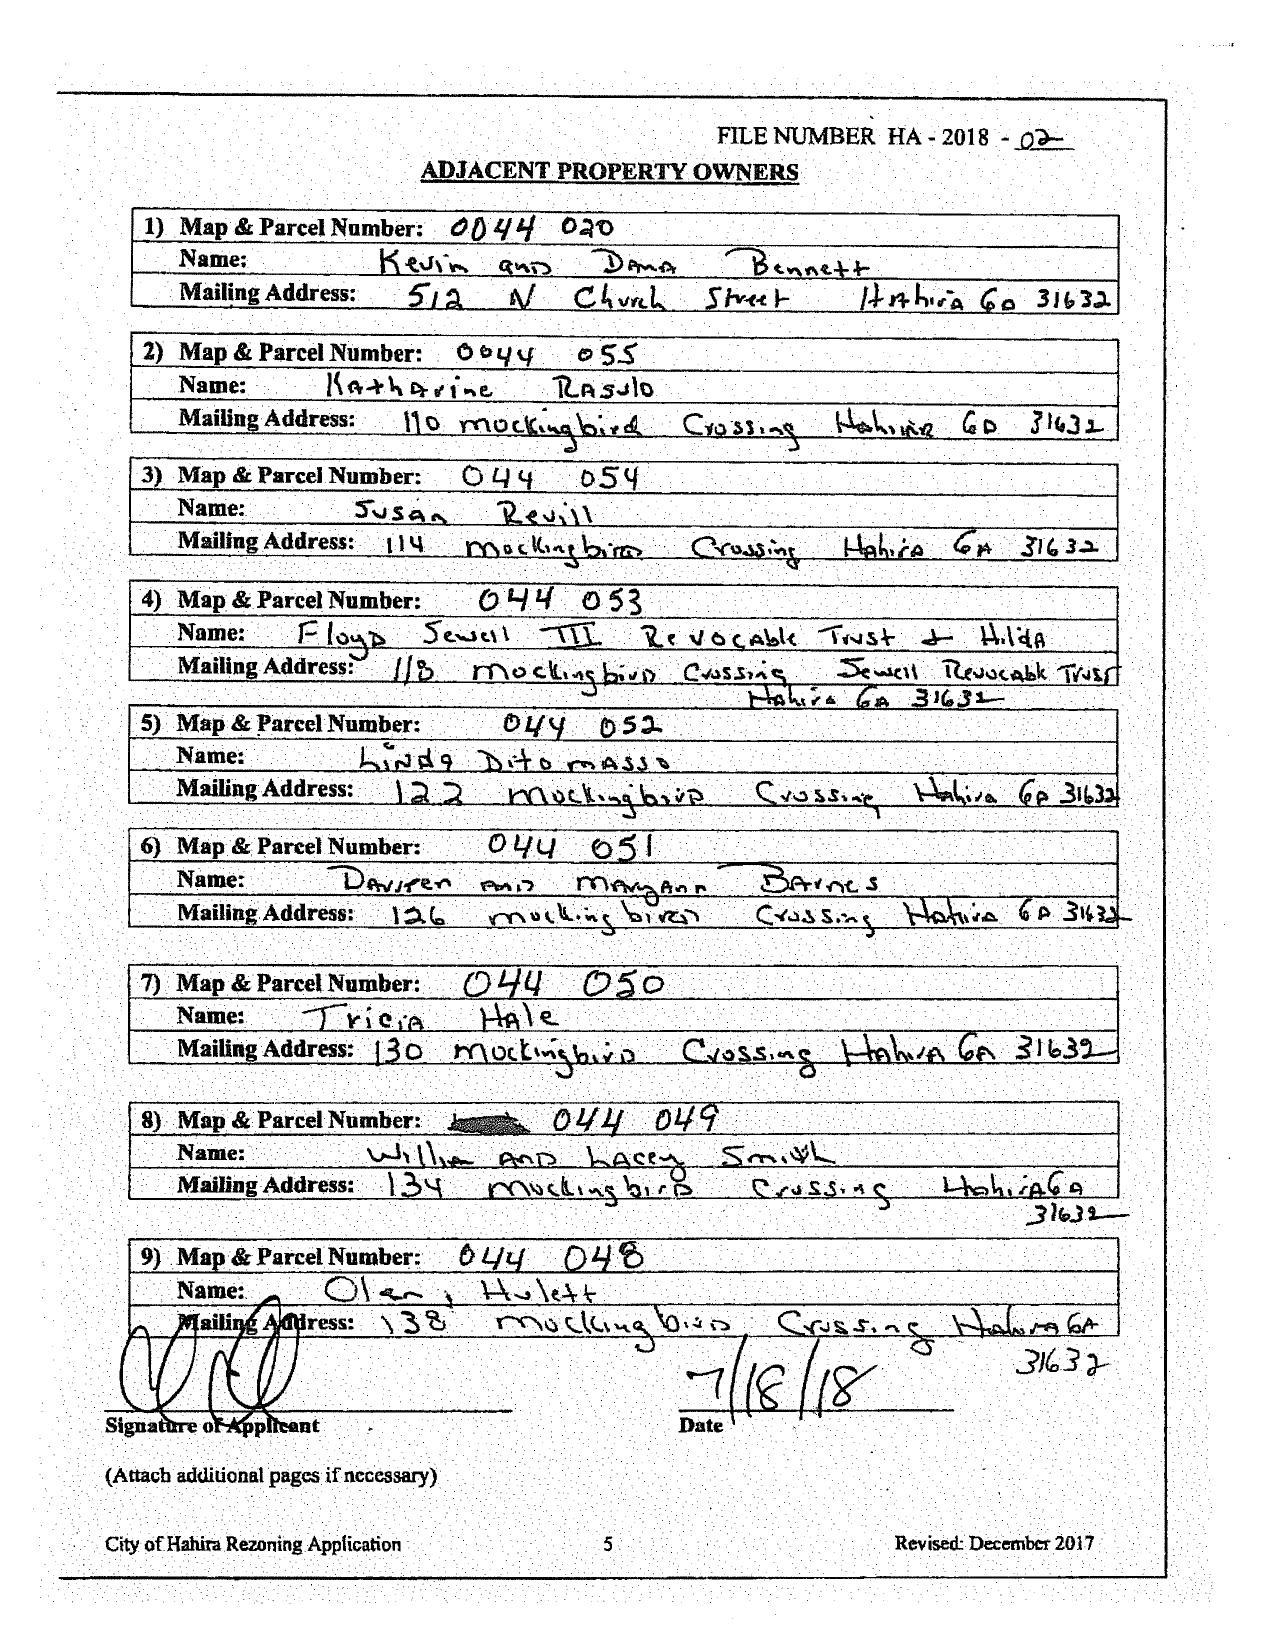 FILE NUMBER HA - 2018 - 02
ADJACENT PROPERTY OWNERS
1) Map & Parcel Number: 0044 020
Name: Kevin and Dana Bennett
Mailing Address: 512 N Church Street Hahira GA 31632
2) Map & Parcel Number: 0044 055
Name: Katharine Rasulo
Mailing Address: 110 mockingbird Crossing Hahira GA 31632
3) Map & Parcel Number: 044 054
Name: Susan Revill
Mailing Address: 114 mockingbird Crossing Hahira GA 31632
4) Map & Parcel Number: 044 053
Name: Floyd Sewell III Revocable Trust & Hilda
Mailing Address: 118 mockingbird Crossing Sewell Revocable Trust
Hahira GA 31632
5) Map & Parcel Number: 044 052
Name: Linda Ditomasso
Mailing Address: 122 mockingbird Crossing Hahira GA 31632
6) Map & Parcel Number: 044 051
Name: and Maryann Barnes
Mailing Address: 126 mockingbird Crossing Hahira GA 31632
7) Map & Parcel Number: 044 050
Name: Tricia Hale
Mailing Address: 130 mockingbird Crossing Hahira GA 31632
8) Map & Parcel Number: 044 049
Name: and Lacey Smith
Mailing Address: 134 mockingbird Crossing Hahira GA
31632
9) Map & Parcel Number: 044 048
Name: Olan Hulett
Mailing Address: 138 mockingbird Crossing Hahira GA
31632
7/18/18
Signature of Applicant Date
(Attach additional pages if necessary)
City of Hahira Rezoning Application 5 Revised: December 2017